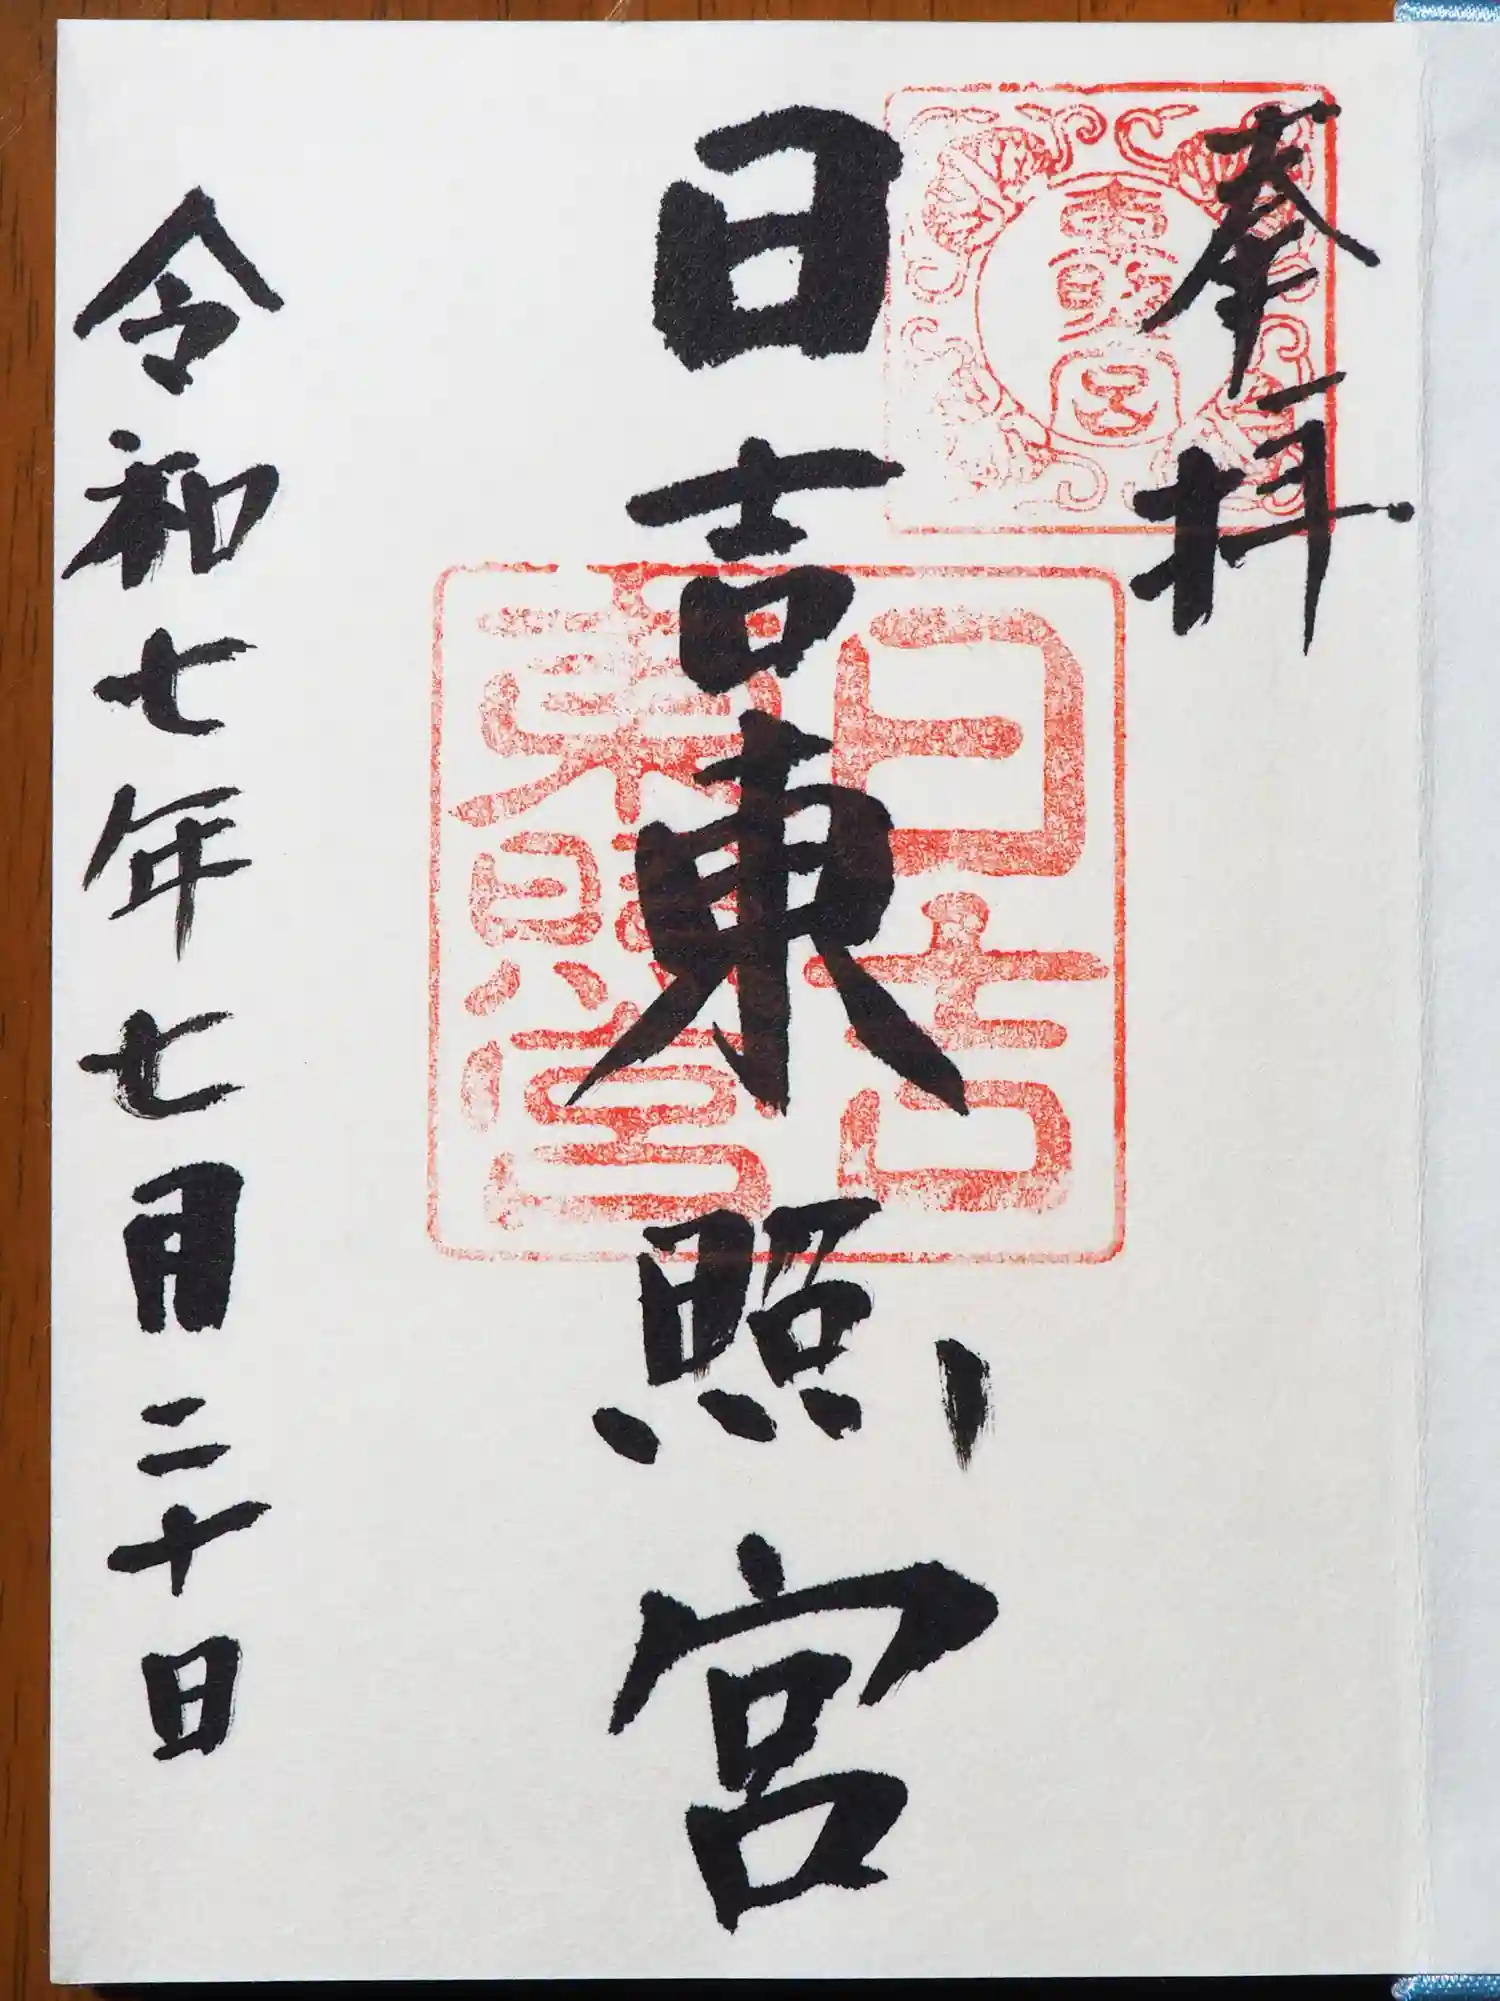 奉拝
日吉東照宮
日吉
東照宮
令和七年七月二十日